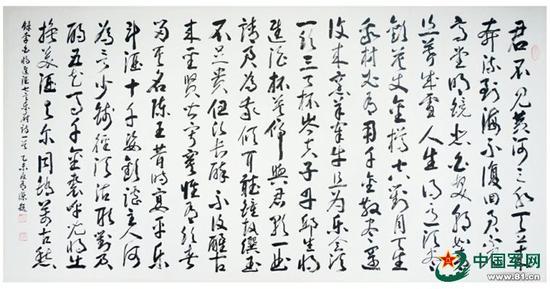 君不见黄河之水天上来
奔流到海不复回君不见
高堂明镜悲白发朝如青
丝暮成雪人生得意须尽
欢莫使金樽空对月天生
我材必有用千金散尽还
复来烹羊宰牛且为乐会须
一饮三百杯岑夫子丹丘生将
进酒杯莫停与君歌一曲
请君为我倾耳听钟鼓馔玉
不足贵但愿长醉不复醒古
来圣贤皆寂寞惟有饮者
留其名陈王昔时宴平乐
斗酒十千恣欢谑主人何
为言少钱径须沽取对君
酌五花马千金裘呼儿将出
换美酒与尔同销万古愁
录李白将进酒七言乐府诗一首 乙未
中国军网
www.81.cn